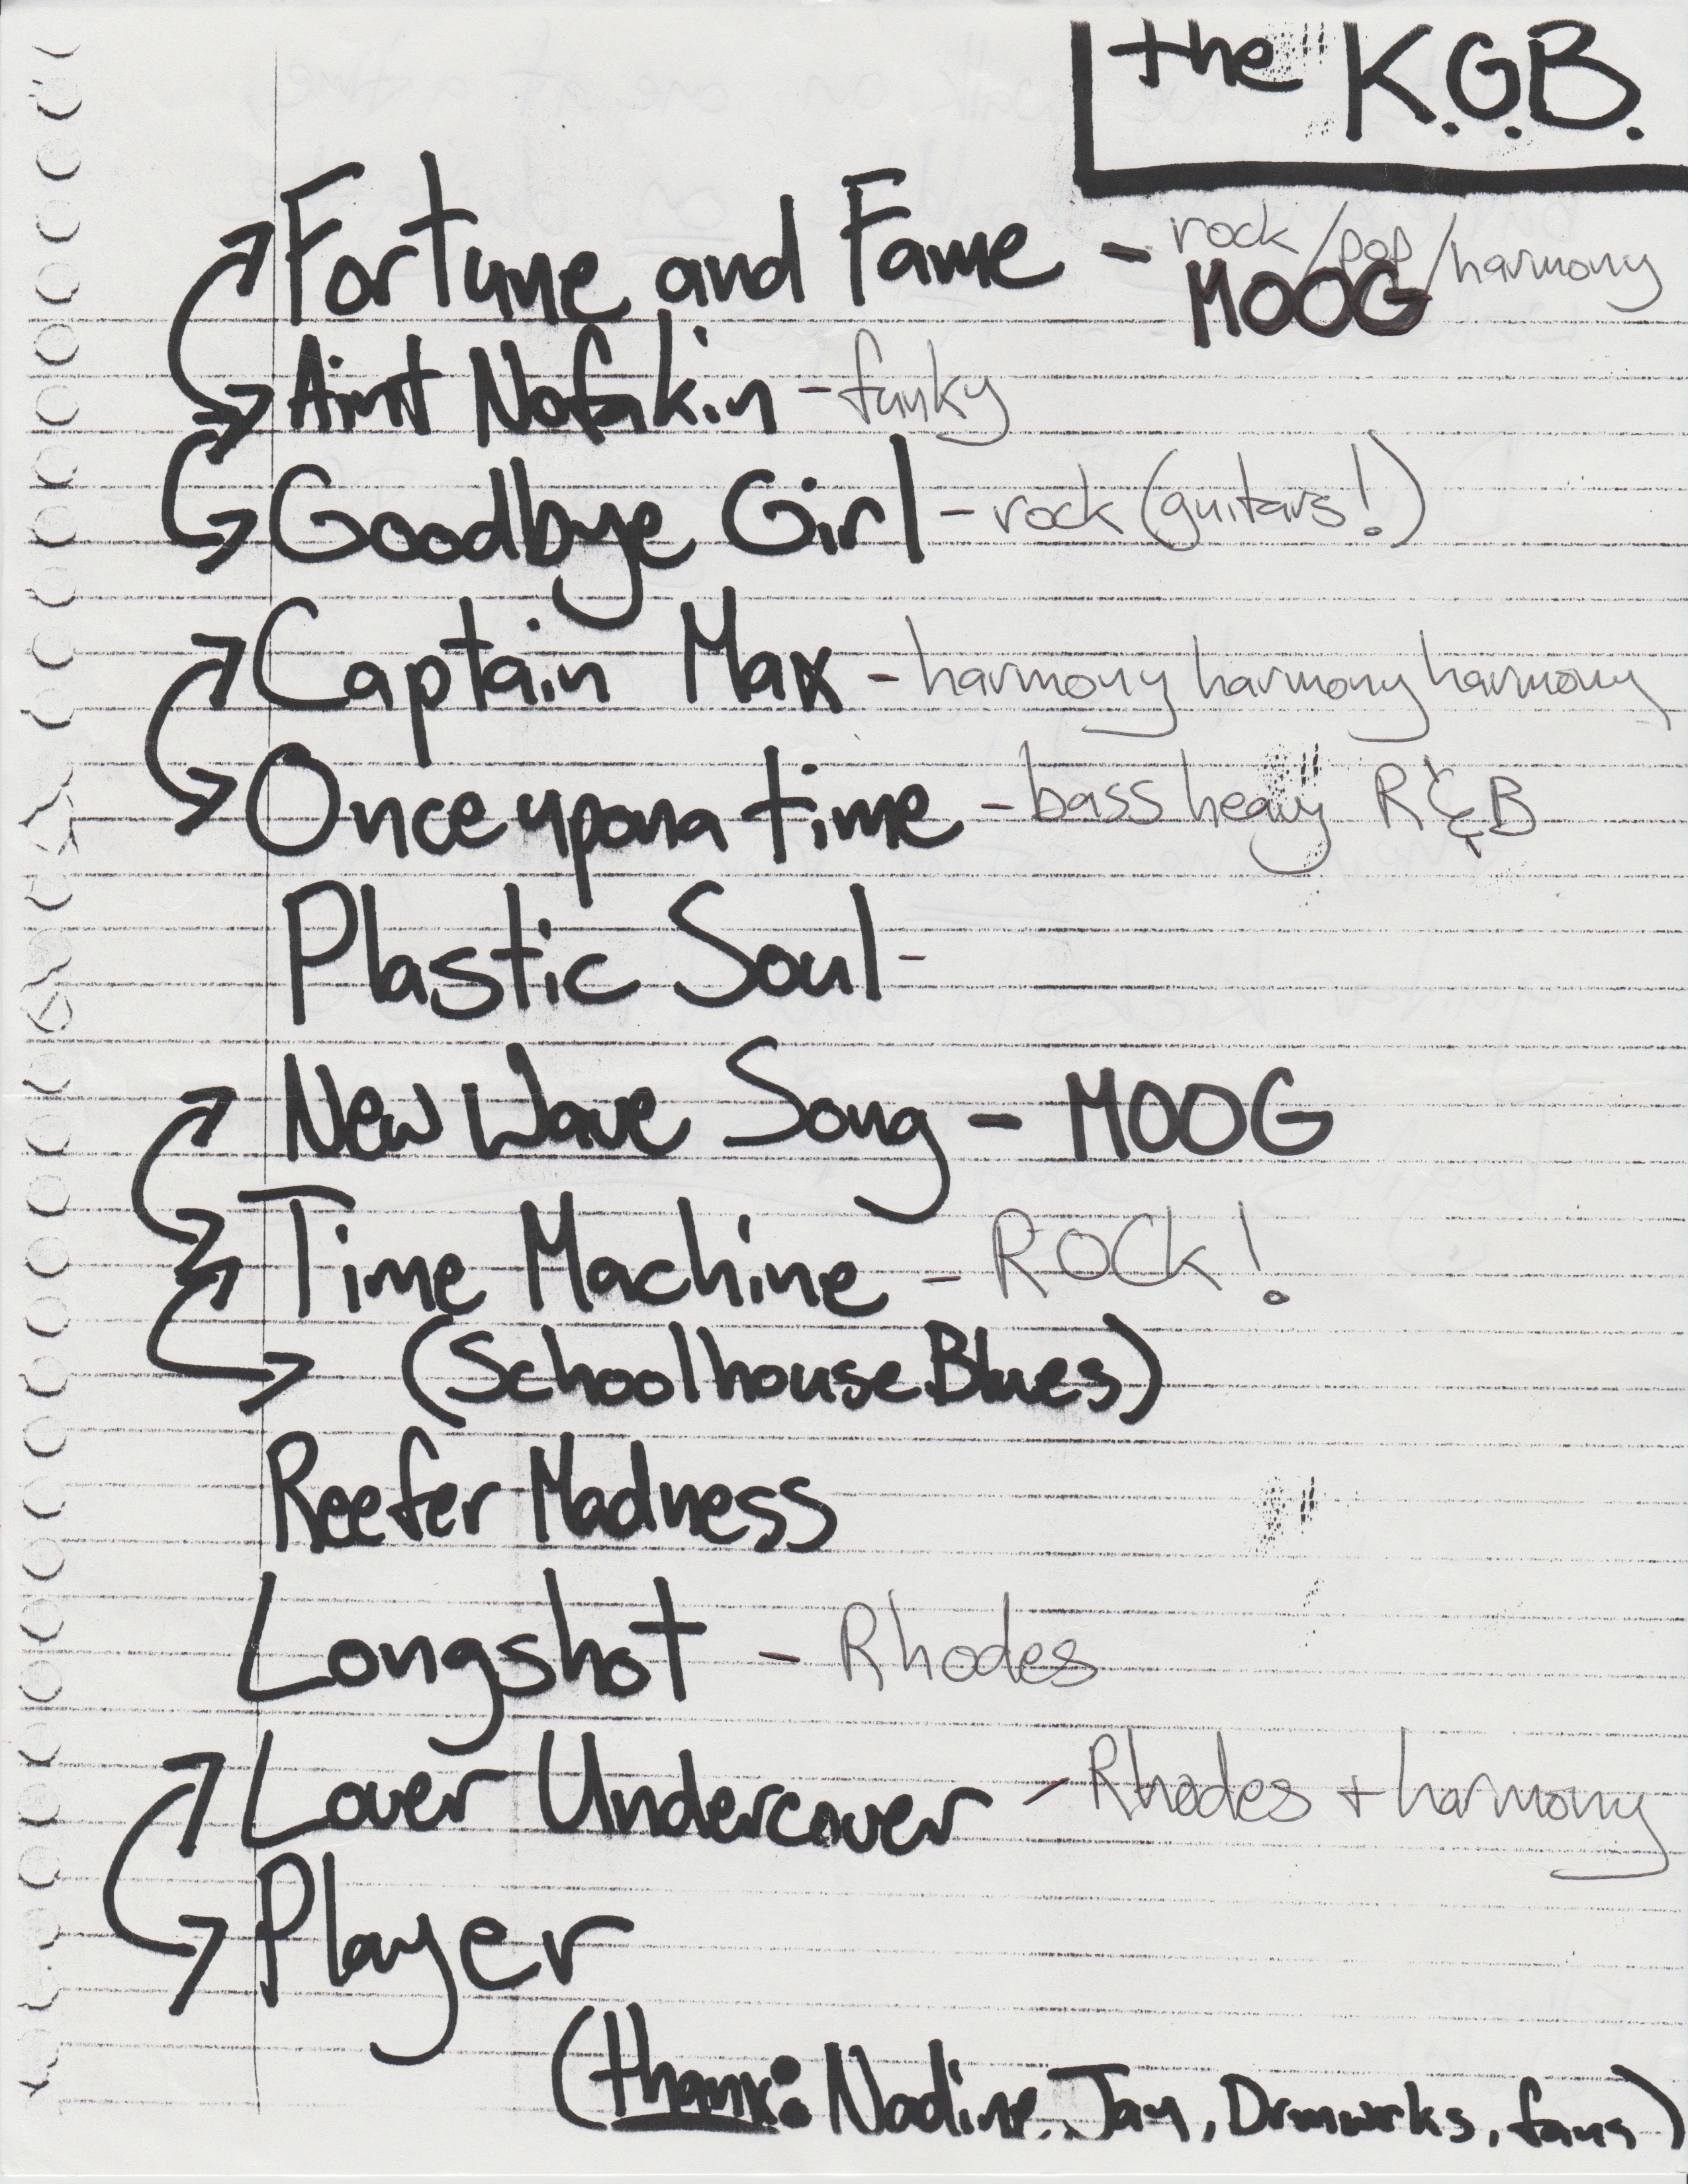 the K.G.B.
Fortune and Fame - rock/pop/harmony
MOOG
Aint Nofakin - funky
Goodbye Girl - rock (guitars!)
Captain Max - harmony harmony harmony
Once upon a time - bass heavy R&B
Plastic Soul -
New Wave Song - MOOG
Time Machine - ROCK!
(Schoolhouse Blues)
Reefer Madness
Longshot - Rhodes
Lover Undercover - Rhodes + harmony
Player
(thank: Nadine, Jay, Drumwrks, fans)